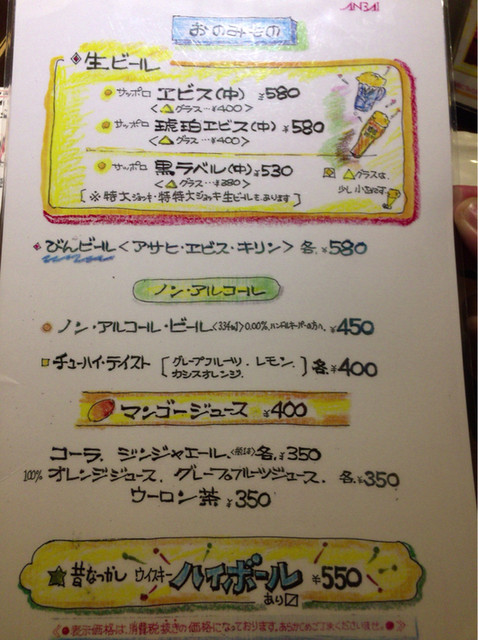 ANBAI
おのみもの
生ビール
サッポロ ヱビス(中) ¥580
<△グラス…¥400>
サッポロ 琥珀ヱビス(中) ¥580
<△グラス…¥400>
サッポロ 黒ラベル(中) ¥530
<△グラス…¥380>
※ △グラスは、
少し小さめです
[※特大ジョッキ・特特大ジョッキ生ビールもあります]
びんビール<アサヒ・ヱビス・キリン> 各¥580
ノン・アルコール
ノン・アルコール・ビール<334ml>0.00%、ハンドルキーパーの方へ、¥450
チューハイ・テイスト [グレープフルーツ、レモン、カシスオレンジ、] 各¥400
マンゴージュース ¥400
コーラ、ジンジャエール、各¥350
100% オレンジジュース、グレープフルーツジュース、各¥350
ウーロン茶 ¥350
昔なつかし ウイスキー ハイボール ¥550
あり〼
●表示価格は、消費税抜きの価格になっております。あらかじめご了承くださいませ。●